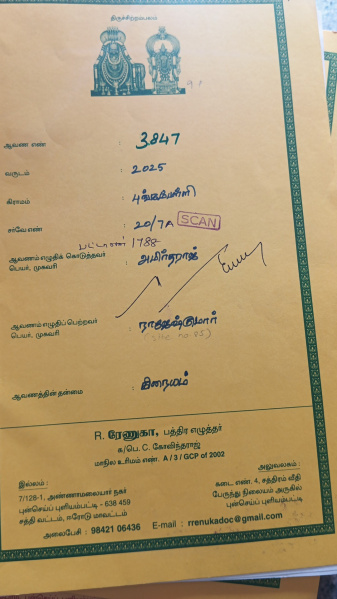 திருச்சிற்றம்பலம்
ஆவண எண் : 3847
வருடம் : 2025
கிராமம் :
சர்வே எண் : 20/7A SCAN
பட்டா எண் 1788
ஆவணம் எழுதிக் கொடுத்தவர் : அமிர்தராஜ்
பெயர், முகவரி
ஆவணம் எழுதிப் பெற்றவர் : ராஜேஷ்குமார்
பெயர், முகவரி
ஆவணத்தின் தன்மை : கிரையம்
R. ரேணுகா, பத்திர எழுத்தர்
க/பெ. C. கோவிந்தராஜ்
மாநில உரிமம் எண். A / 3 / GCP of 2002
இல்லம் :
7/128-1, அண்ணாமலையார் நகர்
புன்செய்ப் புளியம்பட்டி - 638 459
சத்தி வட்டம், ஈரோடு மாவட்டம்
அலுவலகம் :
கடை எண். 4, சத்திரம் வீதி
பேருந்து நிலையம் அருகில்
புன்செய்ப் புளியம்பட்டி
அலைபேசி : 98421 06436 E-mail : rrenukadoc@gmail.com